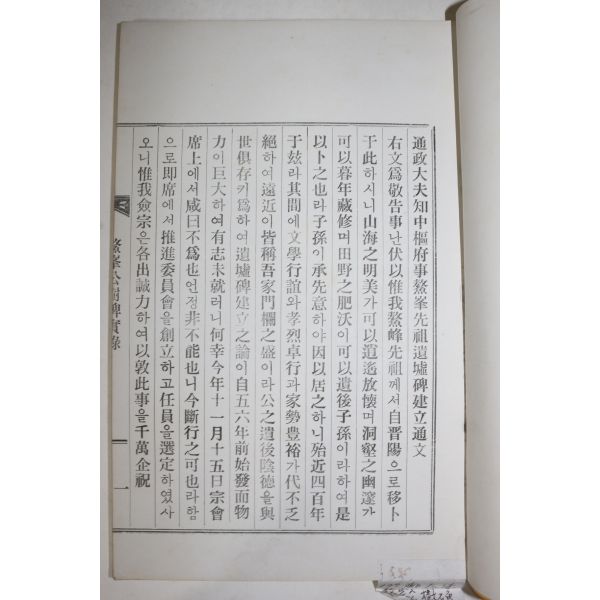 通政大夫知中樞府事鰲峯先祖遺墟碑建立通文
右文爲敬告事난伏以惟我鰲峰先祖께서自晋陽으로移卜
于此하시니山海之明美가可以逍遙放懷며洞壑之幽邃가
可以暮年藏修며田野之肥沃이可以遺後子孫이라하여是
以卜之也라子孫이承先意하야因以居之하니殆近四百年
于玆라其間에文學行誼와孝烈卓行과家勢豊裕가代不乏
絕하여遠近이皆稱吾家門欄之盛이라公之遺後陰德을與
世俱存키爲하여遺墟碑建立之論이自五六年前始發而物
力이巨大하여有志未就러니何幸今年十一月十五日宗會
席上에서咸曰不爲也언정非不能也니今斷行之可也라함
으로即席에서推進委員會을創立하고任員을選定하였사
오니惟我僉宗은各出誠力하여以敦此事을千萬企祝
鰲峯公樹碑實錄
一